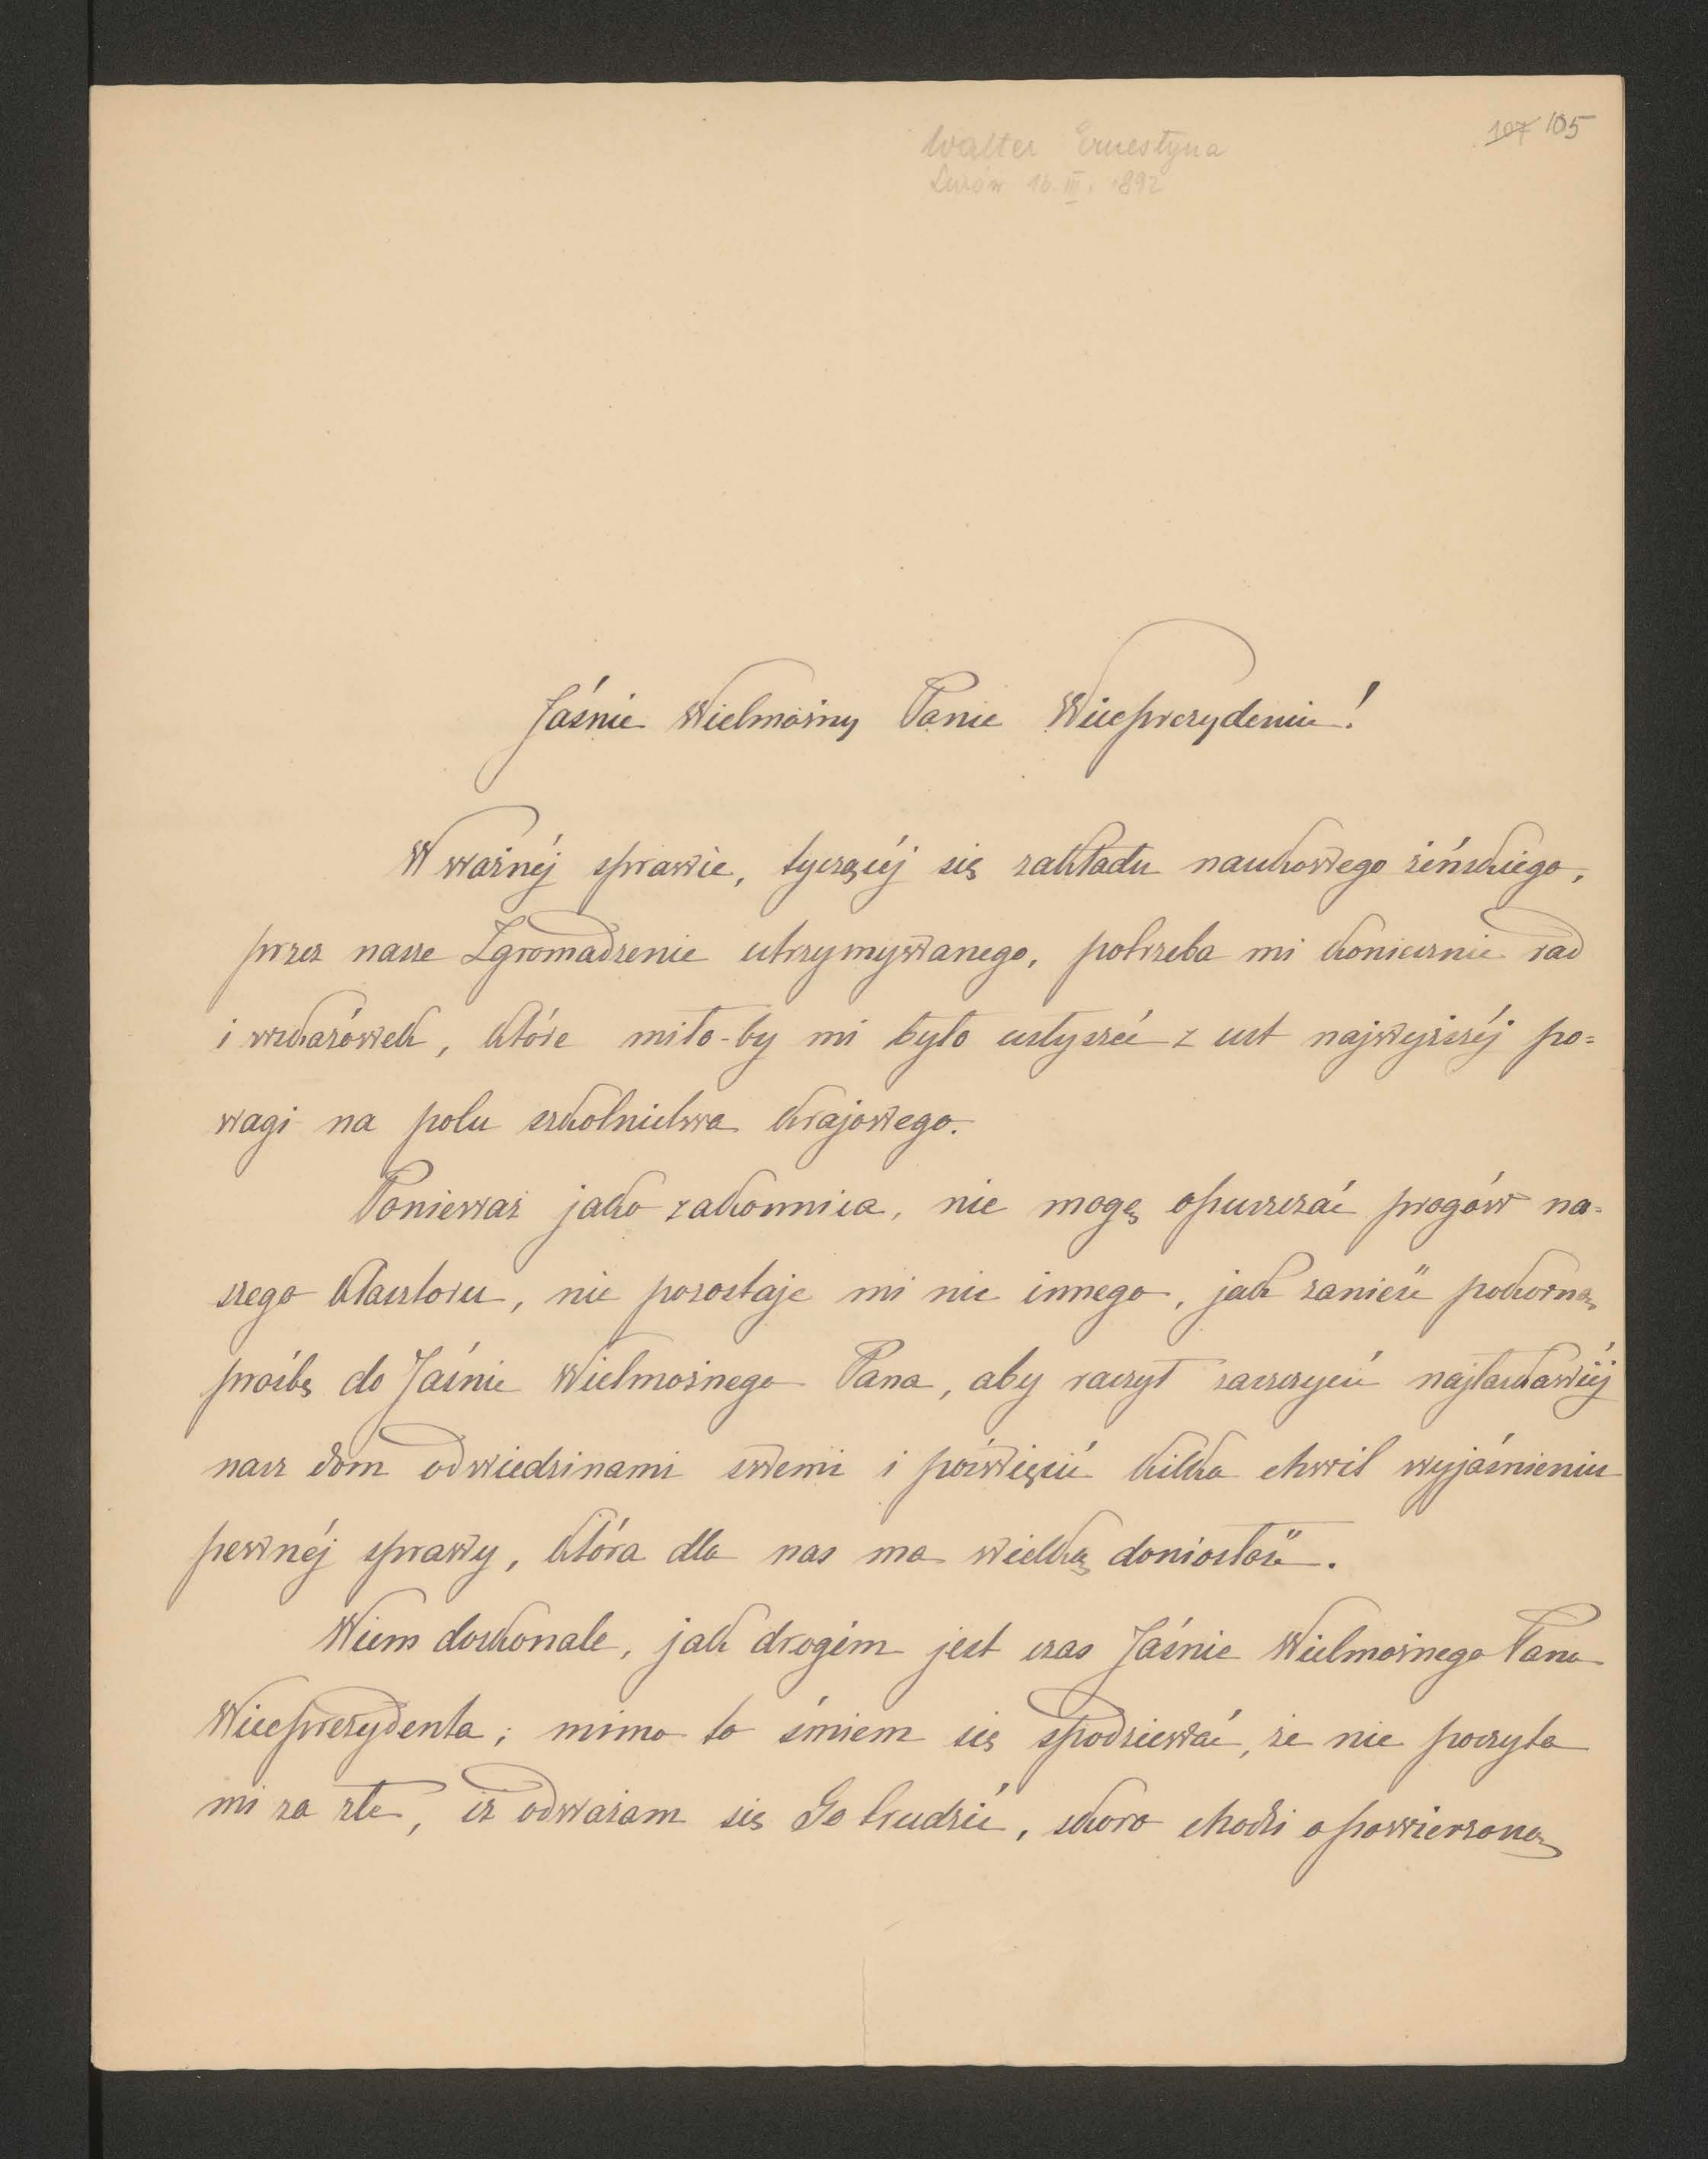 Walter Ernestyna
Lwów 16. III. 1892
107 105
Jaśnie Wielmożny Panie Wiceprezydencie!
W ważnéj sprawie, tyczącéj się zakładu naukowego żeńskiego,
przez nasze Zgromadzenie utrzymywanego, potrzeba mi koniecznie rad
i wskazówek, które miło-by mi było usłyszéć z ust najwyższéj po=
wagi na polu szkolnictwa krajowego.
Ponieważ jako zakonnica, nie mogę opuszczać progów na=
szego klasztoru, nie pozostaje mi nic innego, jak zanieść pokorną
prośbę do Jaśnie Wielmożnego Pana, aby raczył zaszczycić najłaskawiéj
nasz dom odwiedzinami swemi i poświęcić kilka chwil wyjaśnieniu
pewnéj sprawy, która dla nas ma wielką doniosłość.
Wiem doskonale, jak drogim jest czas Jaśnie Wielmożnego Pana
Wiceprezydenta; mimo to śmiem się spodziewać, że nie poczyta
mi za złe, iż odważam się Go trudzić, skoro chodzi o powierzoną